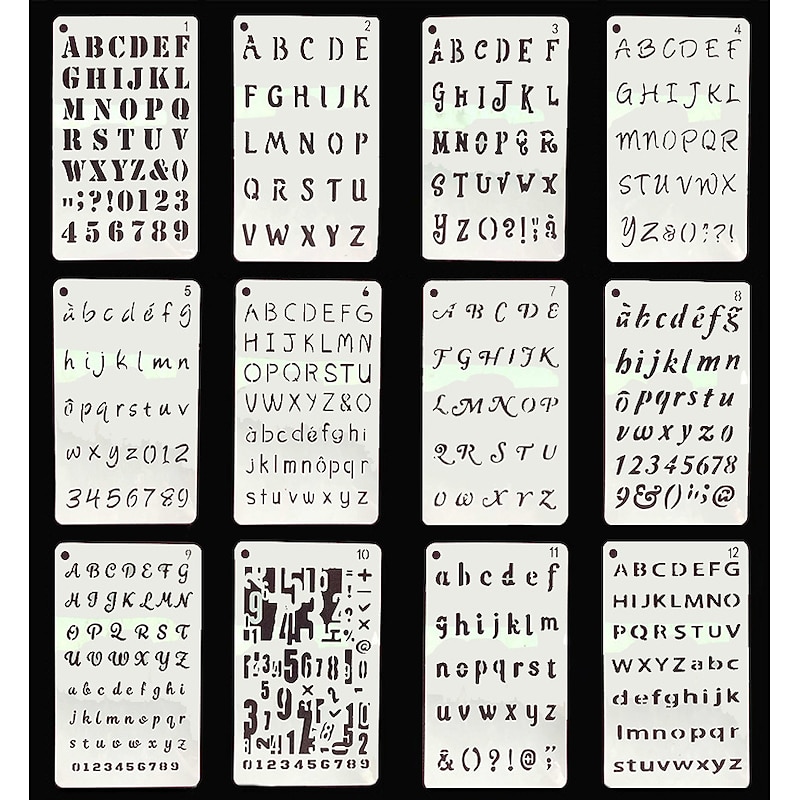 1
ABCDEF
GHIJKL
MNOPQ
RSTUV
WXYZ&()
";?!0123
456789
2
ABCDE
FGHIJK
LMNOP
QRSTU
VWXYZ
3
ABCDEF
GHIJKL
MNOPQR
STUVWX
YZ()?!";à
4
ABCDEF
GHIJKL
MNOPQR
STUVWX
YZ&();?!
5
àbcdéfg
hijklmn
ôpqrstuv
wxyz012
3456789
6
ABCDEFG
HIJKLMN
OPQRSTU
VWXYZ&()
àbcdéfghi
jklmnôpqr
stuvwxyz
7
ABCDE
FGHIJK
LMNOP
QRSTU
VWXYZ
8
àbcdéfg
hijklmn
ôpqrstu
vwxyz0
12345678
9&()";@
9
ABCDEFG
HIJKLMN
OPQRST
UVWXYZ
abcdefghi
jklmnopqr
stuvwxyz
0123456789
10
12345678
0123456789
11
abcdef
ghijklm
nopqrst
uvwxyz
&()?!@;
12
ABCDEFG
HIJKLMNO
PQRSTUV
WXYZabc
defghijk
lmnopqr
stuvwxyz